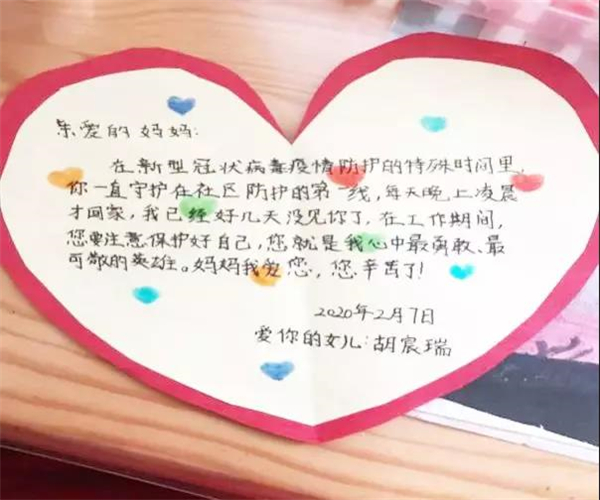 亲爱的妈妈:
在新型冠状病毒疫情防护的特殊时间里,
你一直守护在社区防护的第一线,每天晚上凌晨
才回家,我已经好几天没见你了,在工作期间,
您要注意保护好自己,您就是我心中最勇敢、最
可敬的英雄。妈妈我爱您,您辛苦了!
2020年2月7日
爱你的女儿:胡宸瑞